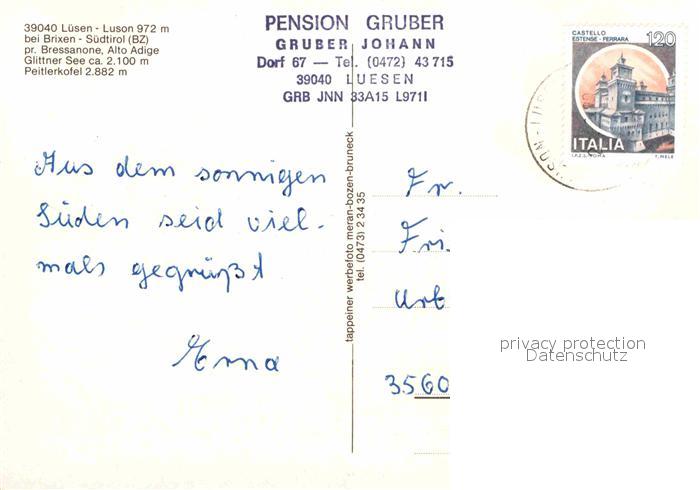 39040 Lüsen - Luson 972 m
bei Brixen - Südtirol (BZ)
pr. Bressanone, Alto Adige
Glittner See ca. 2.100 m
Peitlerkofel 2.882 m
PENSION GRUBER
GRUBER JOHANN
Dorf 67 — Tel. (0472) 43 715
39040 LUESEN
GRB JNN 33A15 L971I
CASTELLO
ESTENSE - FERRARA
120
ITALIA
I.P.Z.S. ROMA
T. MELE
Aus dem sonnigen
Süden seid viel-
mals gegrüßt
Erna
tappeiner werbefoto meran-bozen-bruneck
tel. (0473) 2 34 35
Fr.
Fri
Urb
3560
privacy protection
Datenschutz